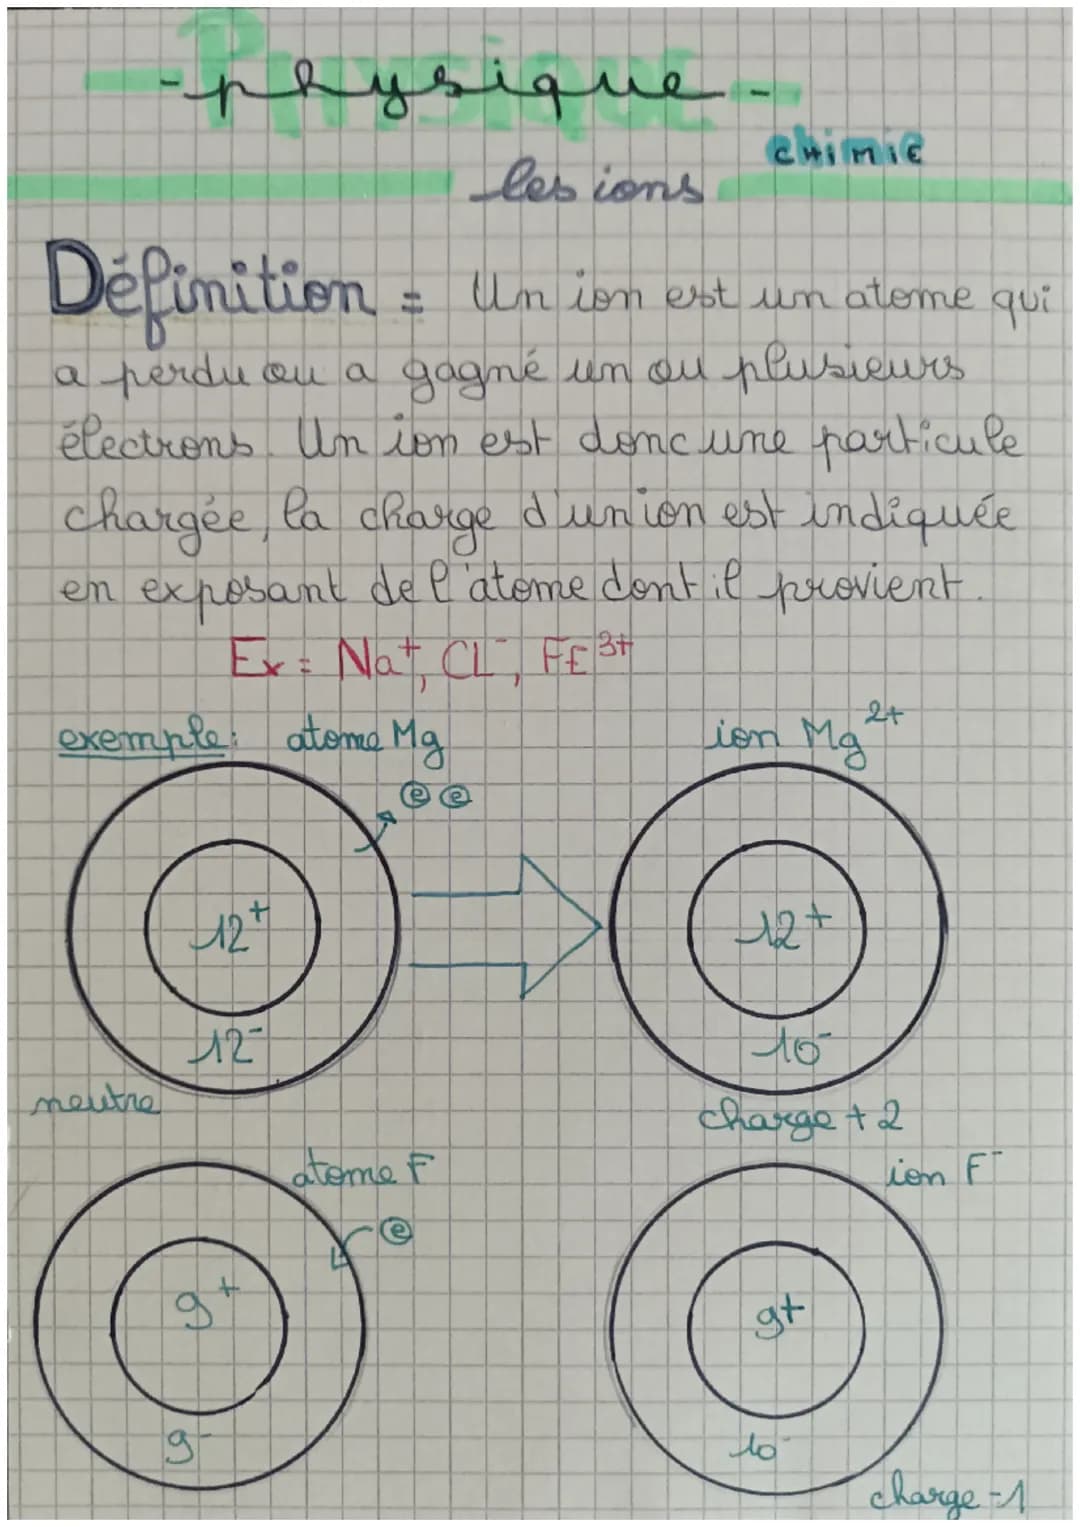 Physique
- physique -
chimie
les ions
Définition = Un ion est un atome qui
a perdu ou a gagné un ou plusieurs
électrons. Un ion est donc une particule
chargée, la charge d'un ion est indiquée
en exposant de l'atome dont il provient.
Ex = Na⁺, CL⁻, FE³⁺
exemple: atome Mg
ion Mg²⁺
e e
12⁺
12⁻
neutre
12+
10⁻
charge + 2
atome F
e
9⁺
9⁻
ion F⁻
9+
10⁻
charge -1